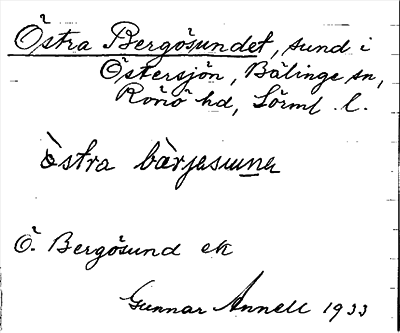 Östra Bergösundet, sund i
Östersjön, Bälinge sn,
Rönö hd, Sörml. l.
òstra bàrjasuner
Ö. Bergösund ek
Gunnar Annell 1933